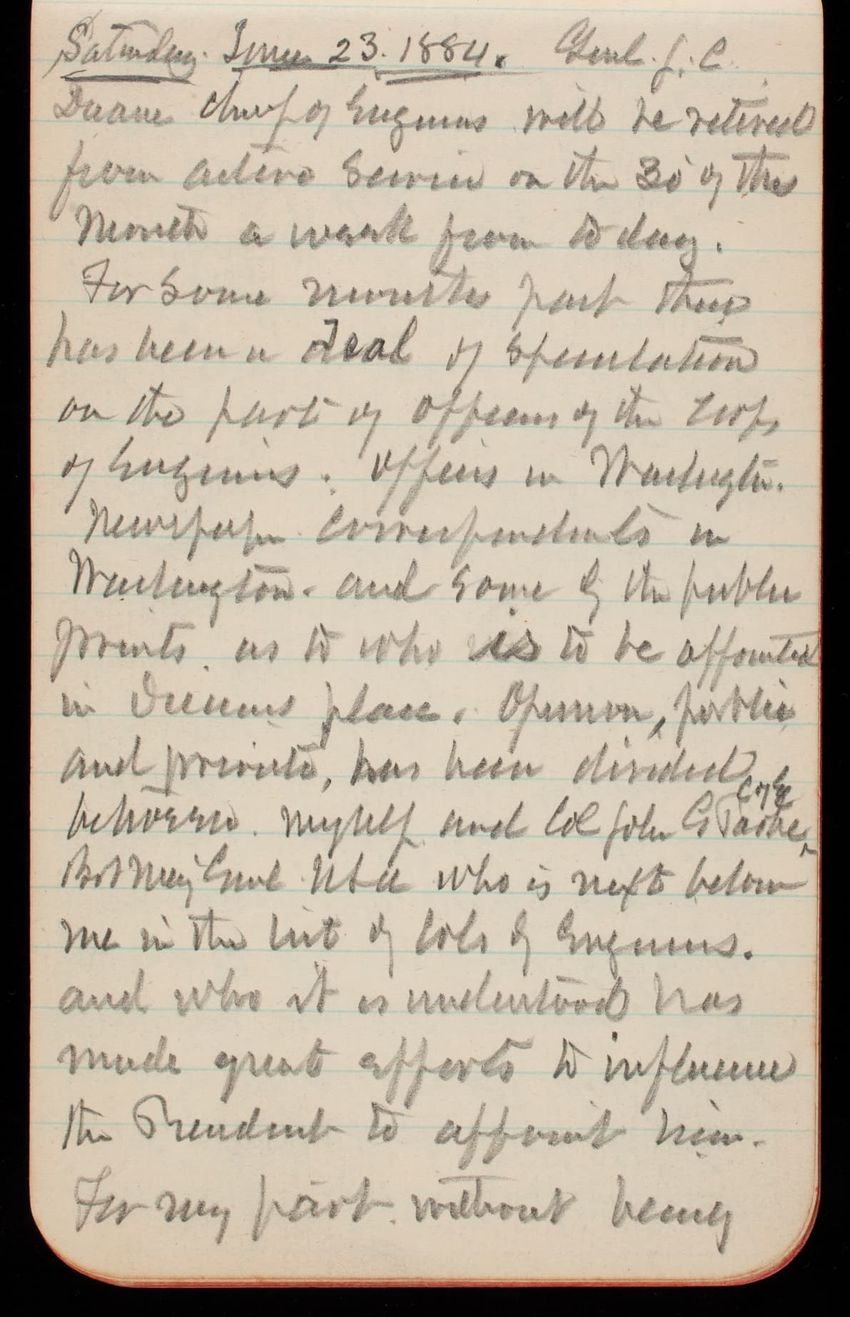 Saturday June 23. 1884. Genl. J. C.
Duane Chief of Engineers will be retired
from active service on the 30 of this
month a week from to day.
For some months past there
has been a deal of speculation
on the part of officers of the Corps
of Engineers. Officers in Washington.
Newspaper Correspondents in
Washington. and some of the public
prints. as to who is to be appointed
in Duanes place. Opinion, public
and private, has been divided
between myself and Col John G Parke, C of E
Bvt Maj Genl U.S.A who is next below
me in the list of Cols of Engineers.
and who it is understood has
made great efforts to influence
the President to appoint him.
For my part. without being